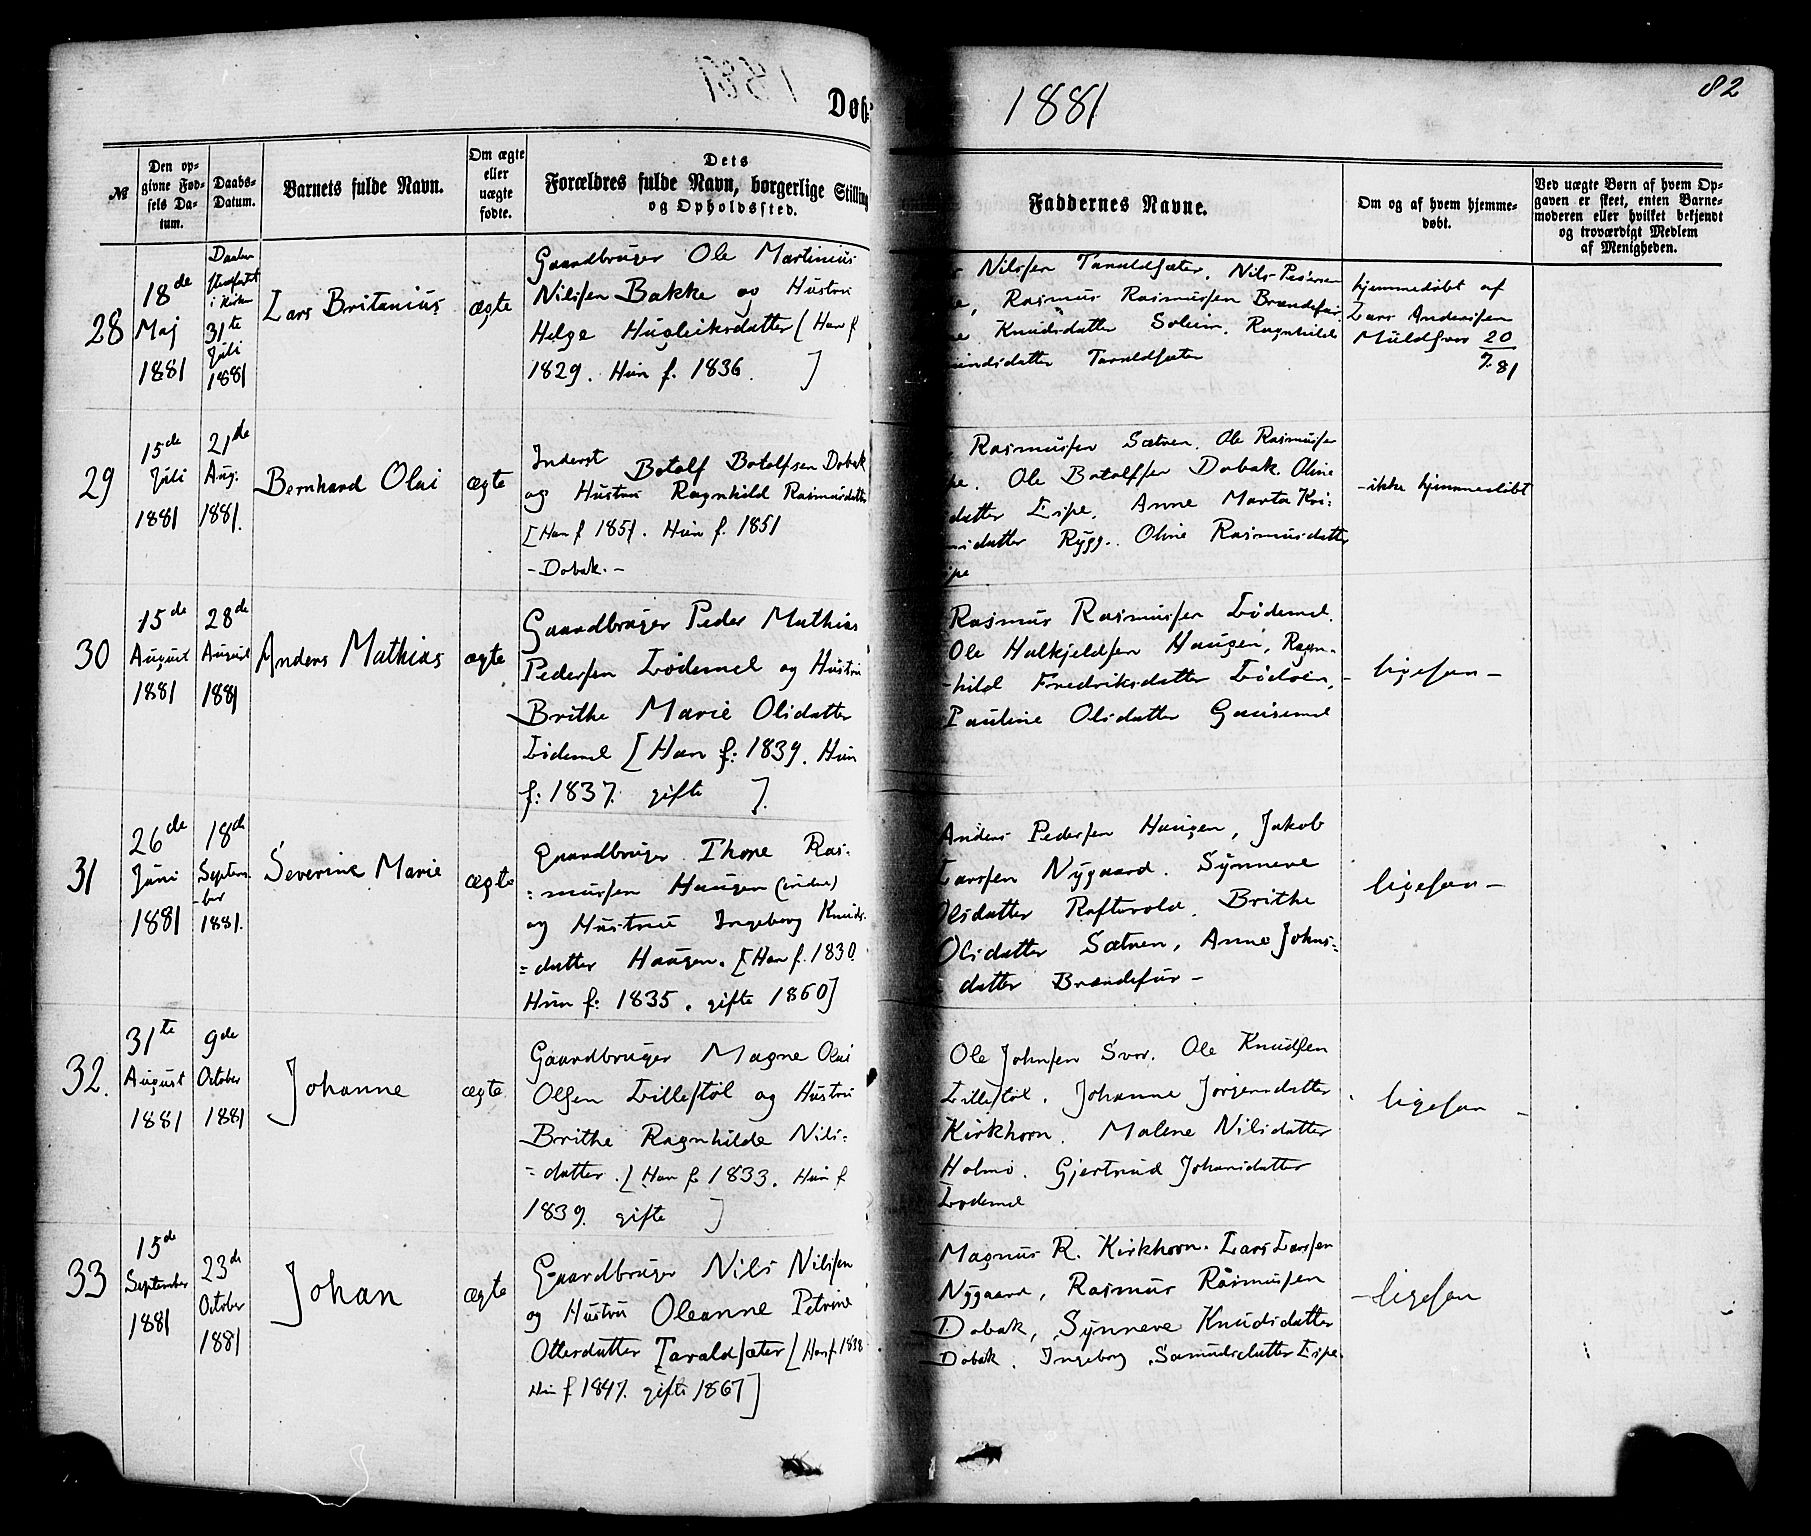 82
Døb-
1881
№
Den op-
givne Fød-
sels Da-
tum.
Daabs-
Datum.
Barnets fulde Navn.
Om ægte
eller
uægte
fødte.
Dets
Forældres fulde Navn, borgerlige Stilling
og Opholdssted.
Faddernes Navne.
Om og af hvem hjemme-
døbt.
Ved uægte Børn af hvem Op-
gaven er skeet, enten Barne-
moderen eller hvilket bekjendt
og troværdigt Medlem
af Menigheden.
28
18de
Maj
1881
Daaben
i Kirken
31te
Juli
1881
Lars Britanius
ægte
Gaardbruger Ole Martinius
Nilssen Bakke og Hustru
Helge Hugleiksdatter [Han f.
1829. Hun f. 1836. ]
Nilssen Taraldsæter. Nils Pedersen
Rasmus Rasmussen Brændefur
Knudsdatter Soleim. Ragnhild
datter Taraldsæter
hjemmedøbt af
Lars Anderssen
Muldsvor 20
7. 81
29
15de
Juli
1881
21de
Aug.
1881.
Bernhard Olai
ægte
Inderst Botolf Botolfsen Dobak
og Hustru Ragnhild Rasmusdatter
[Han f 1851. Hun f. 1851
- Dobak. -
Rasmussen Sætren. Ole Rasmussen
pe. Ole Botolfsen Dobak. Oline
datter Eipe. Anne Marta Kri-
nsdatter Rygg. Oline Rasmusdatter
ipe
- ikke hjemmedøbt
30
15de
August
1881
28de
August
1881
Anders Mathias
ægte
Gaardbruger Peder Mathias
Pedersen Lødemel og Hustru
Brithe Marie Olsdatter
Lødemel [Han f: 1839. Hun
f: 1837. gifte ].
Rasmus Rasmussen Lødemel.
Ole Halkjeldsen Haugen, Ragn-
-hild Fredriksdatter Lødøen,
Pauline Olsdatter Gausemel
- ligesaa -
31
26de
Juni
1881
18de
Septem-
-ber
1881.
Severine Marie
ægte
Gaardbruger Thore Ras-
=mussen Haugen (indre)
og Hustru Ingeborg Knuds-
=datter Haugen. [Han f. 1830
Hun f: 1835. gifte 1860]
Anders Pedersen Haugen, Jakob
Larssen Nygaard. Synneve
Olsdatter Raftevold. Brithe
Olsdatter Sætren, Anne Johns=
datter Brændefur -
ligesaa -
32.
31te
August
1881
9de
October
1881
Johanne
ægte
Gaardbruger Magne Olai
Olsen Lillestøl og Hustru
Brithe Ragnhilde Nils=
=datter. [Han f. 1833. Hun f
1839. gifte ]
Ole Johnsen Svor. Ole Knudsen
Lillestøl. Johanne Jørgensdatter
Kirkhorn. Malene Nilsdatter
Holmø. Gjertrud Johansdatter
Lødemel
ligesaa -
33
15de
September
1881
23de
October
1881
Johan
ægte
Gaardbruger Nils Nilssen
og Hustru Oleanne Petrine
Ottersdatter Taraldsæter [Han f. 1838
Hun f 1847. gifte 1867]
Magnus R. Kirkhorn. Lars Larssen
Nygaard, Rasmus Rasmussen
Dobak, Synneve Knudsdatter
Dobak. Ingeborg Samuelsdatter Eipe.
- ligesaa